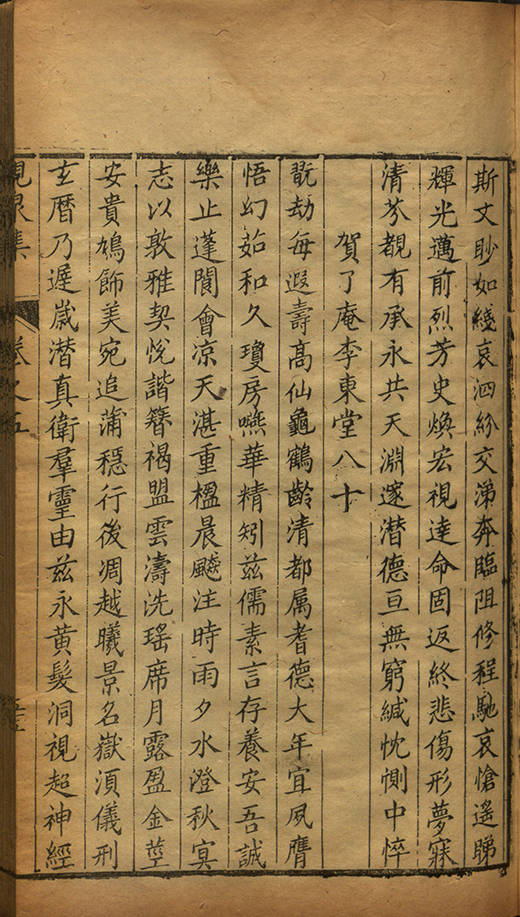 斯文眇如綫哀泗紛交涕奔臨阻修程馳哀愴遙睇
輝光邁前烈芳史煥宏視達命固返終悲傷形夢寐
清芬覩有承永共天淵邃潜德亘無窮緘忱惻中悴
賀了庵李東堂八十
翫劫每遐壽髙仙龜鶴齡清都属耆德大年宜夙膺
悟幻茹和久瓊房嚥華精矧茲儒素言存養安吾誠
樂止蓬閬會凉天湛重楹晨飈注時雨夕水澄秋㝠
志以敦雅契悅諧簪褐盟雲濤洗瑤席月露盈金莖
安貴鳩飾美宛追蒲穏行後凋越曦景名嶽湏儀刑
玄曆乃遲嵗潜真衛羣靈由兹永黄髮洞視超神經
集 卷之五